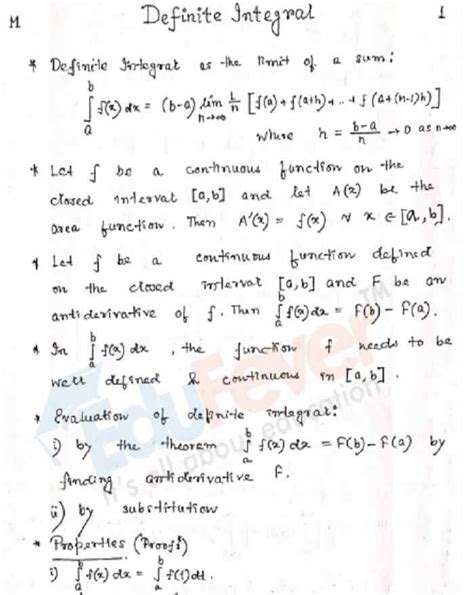 M Definite Integral 1
* Definite Integral as the limit of a sum:
∫ₐᵇ f(x) dx = (b-a) lim n→∞ 1/n [f(a) + f(a+h) + .. + f(a+(n-1)h)]
where h = (b-a)/n → 0 as n→∞
* Let f be a continuous function on the
closed interval [a,b] and let A(x) be the
area function. Then A'(x) = f(x) ∀ x ∈ [a,b].
* Let f be a continuous function defined
on the closed interval [a,b] and F be an
antiderivative of f. Then ∫ₐᵇ f(x) dx = F(b) - F(a).
* In ∫ₐᵇ f(x) dx, the function f needs to be
well defined & continuous in [a,b].
* Evaluation of definite integral:
i) by the theorem ∫ₐᵇ f(x) dx = F(b) - F(a) by
finding antiderivative F.
ii) by substitution
* Properties (Proofs)
i) ∫ₐᵇ f(x) dx = ∫ₐᵇ f(t) dt.
EduFever™
it's all about education